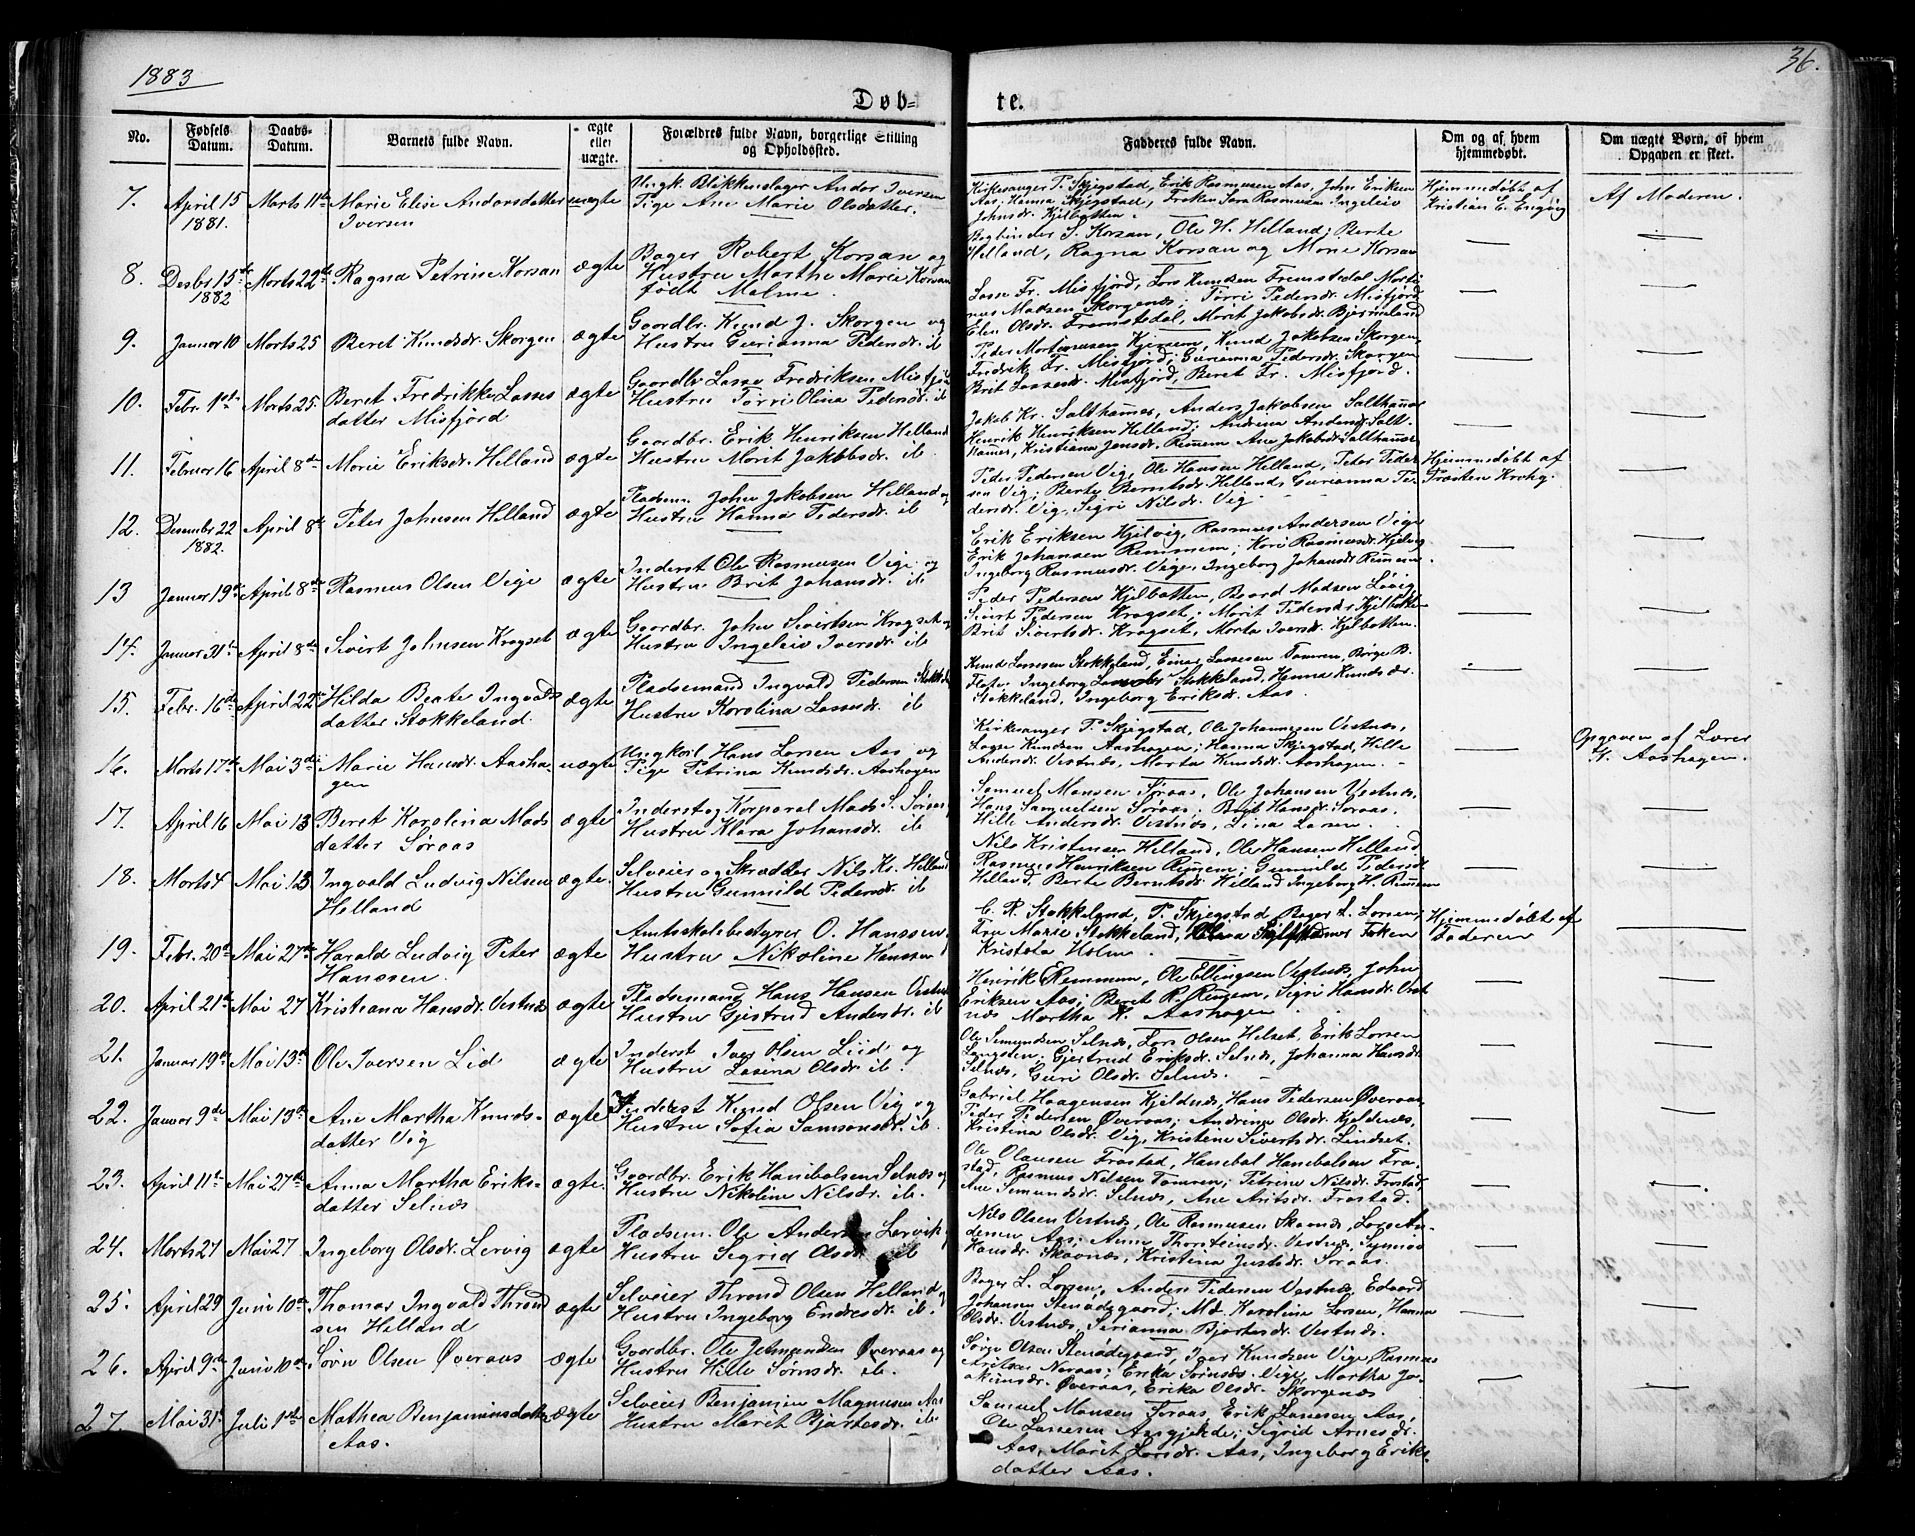 1883
36.
Døb-
te.
No.
Fødsels Datum.
Daabs-Datum.
Barnets fulde Navn.
ægte eller uægte.
Forældres fulde Navn, borgerlige Stilling og Opholdssted.
Fadderes fulde Navn.
Om og af hvem hjemmedøbt.
Om uægte Børn, af hvem Opgaven er skeet.
7. April 15 1881. Marts 11te Marie Elise Andorsdatter Iversen uægte
Ungk. Blikkenslager Andor Iversen
Pige Ane Marie Olsdatter.
Kirkesanger P. Skjegstad, Erik Rasmusen Aas, John Eriksen
Aas; Hanna Skjegstad, Frøken Sara Rasmusen, Ingeleiv
Johnsdr. Kjelbotten.
Hjemmedøbt af Kristian E. Engvig
Af Moderen.
8. Desbr. 15de 1882 Marts 22de Ragna Petrine Korsan ægte
Bager Robert Korsan og
Hustru Marthe Marie Korsan
født Malme.
Bogbinder S. Korsan, Ole H. Helland; Berte
Helland, Ragna Korsan og Marie Korsan
9. Januar 10 Marts 25 Beret Knudsdr. Skorgen ægte
Gaardbr. Knud J. Skorgen og
Hustru Gurianna Pedersdr. ib
Lasse Fr. Misfjord, Lars Knudsen Fremstedal, Morti-
nus Madsen Skorgenes; Tørri Pedersdr. Misfjord
Elen Olsdr. Fremstedal, Marit Jakobsdr. Bjermeland
10. Febr. 1ste Marts 25 Beret Fredrikke Lasses
datter Misfjord ægte
Gaardbr. Lasse Fredriksen Misfjord
Hustru Tørri Olina Pedersdr. ib
Peder Mortinusen Hjerem, Knud Jakobsen Skorgen
Fredrik Fr. Misfjord; Gurianna Pedersdr. Skorgen
Brit Lassesdr. Misfjord, Beret Fr. Misfjord.
11. Februar 16 April 8de Marie Eriksdr. Helland ægte
Gaardbr. Erik Henriksen Helland
Hustru Marit Jakobsdr. ib
Jakob Kr. Salthamer, Anders Jakobsen Salthamer
Henrik Henriksen Helland; Andrina Andersdr. Salt-
hamer, Kristiana Jonsdr. Remem, Ane Jakobsdr. Salthamer
12. Desember 22 1882. April 8de Peter Johnsen Helland ægte
Pladsm. John Jakobsen Helland og
Hustru Hanna Pedersdr. ib
Peder Pedersen Vig, Ole Hansen Helland, Peter Peder
sen Vig; Berte Berntsdr. Helland, Gurianna Pe-
dersdr. Vig, Sigri Nilsdr. Vig
Hjemmedøbt af Trosten Krohg.
13 Januar 19de April 8de Rasmus Olsen Vige ægte
Inderst Ole Rasmusen Vige og
Hustru Brit Johansdr. ib
Erik Eriksen Hjelvig, Rasmus Andersen Vige
Erik Johansen Remmem; Kari Rasmusdr. Hjelvig
Ingeborg Rasmusdr. Vige, Ingeborg Johansdr. Remem.
14. Januar 31te April 8de Sivert Johnsen Kragset ægte
Gaardbr. John Sivertsen Kragset og
Hustru Ingeleiv Iversdr. ib
Peder Pedersen Kjelbotten, Baard Madsen Løvig
Sivert Pedersen Kragset; Marit Pedersdr. Kjelbotten
Brit Sivertsdr. Kragset, Marta Iversdr. Kjelbotten.
15. Febr. 16de April 22de Hilda Beate Ingvalds
datter Stokkeland. ægte
Pladsemand Ingvald Pedersen Stokkeland
Hustru Karolina Lassesdr. ib
Knud Lassesen Stokkeland, Einar Lassesen Tomren, Børge B.
Ingeborg Stokkeland, Hanna Knudsdr.
Stokkeland, Ingeborg Eriksdr. Aas.
16. Marts 17de Mai 3die Marie Hansdr. Aasha-
gen uægte
Ungkarl Hans Larsen Aas og
Pige Petrina Knudsdr. Aashagen
Kirkesanger P. Skjegstad, Ole Johannesen Vestnæs,
Lasse Knudsen Aashagen; Hanna Skjegstad, Hille
Andersdr. Vestnæs, Marta Knudsdr. Aashagen.
Opgaven af Lærer K. Aashagen.
17. April 16 Mai 13 Beret Karolina Mads
datter Søraas ægte
Inderst og Korporal Mads S. Søraas
Hustru Klara Johansdr. ib
Samuel Monsen Søraas, Ole Johansen Vestnæs,
Hans Samuelsen Søraas; Brit Hansdr. Søraas
Hille Andersdr. Vestnæs, Lina Larsen.
18. Marts 4 Mai 13 Ingvald Ludvig Nilsen
Helland ægte.
Selveier og Skrædder Nils Kr. Helland
Hustru Gunnild Pedersdr. ib
Nils Kristensen Helland, Ole Hansen Helland
Rasmus Henriksen Remem; Gunnild Pedersdr.
Helland, Berte Berntsdr. Helland, Ingeborg H. Remem
19. Febr. 20de Mai 27de Harald Ludvig Peter
Hanssen. ægte
Amtsskolebestyrer O. Hanssen
Hustru Nikoline Hanssen
C. R. Stokkeland, P. Skjegstad, Bager L. Larsen,
Fru Marie Stokkeland, Frøken
Kristofa Holm.
Hjemmedøbt af Faderen
20. April 21de Mai 27 Kristiana Hansdr. Vestnæs ægte
Pladsemand Hans Hansen Vestnæs
Hustru Gjertrud Andersdr. ib
Henrik Remmem, Ole Ellingsen Vestnæs, John
Eriksen Aas; Beret R. Remem, Sigri Hansdr. Vest
næs Martha K. Aashagen.
21. Januar 19de Mai 13de Ole Iversen Lid ægte
Inderst Iver Olsen Liid og
Hustru Lasina Olsdr. ib.
Ole Simundsen Selnæs, Lars Olsen Helset, Erik Larsen
Langsten; Gjertrud Eriksdr. Selnæs, Johanna Hansdr.
Selnæs, Guri Olsdr. Selnæs.
22. Januar 9de Mai 13de Ane Martha Knuds-
datter Vig ægte
Inderst Knud Olsen Vig og
Hustru Sofia Samsonsdr. ib.
Gabriel Haagensen Kjeldnæs, Hans Pedersen Øveraas,
Peder Pedersen Øveraas; Andrine Olsdr. Kjeldnæs,
Kristina Olsdr. Vig, Kristine Sivertsdr. Lindset.
23. April 11te Mai 27de Anna Martha Eriks-
datter Selnæs ægte.
Gaardbr. Erik Hanibalsen Selnæs og
Hustru Nikoline Nilsdr. ib.
Ole Olausen Frostad, Hanebal Hanebalsen Fro-
stad, Rasmus Nielsen Tomren; Petrine Nilsdr. Frostad,
Ane Simundsdr. Selnæs, Ane Aritsdr. Frostad.
24. Marts 27 Mai 27 Ingeborg Olsdr. Lervig ægte
Pladsem. Ole Andersen Lervik
Hustru Sigrid Olsdr. ib
Nils Olsen Vestnæs, Ole Rasmusen Skavnæs, Lars An-
dersen Aas; Anne Thorsteinsdr. Vestnæs, Synnøv
Hansdr. Skavnæs, Kristina Justsdr. Søraas.
25. April 29 Juni 10de Thomas Ingvald Thrond
sen Helland ægte
Selveier Thrond Olsen Helland og
Hustru Ingeborg Endresdr. ib.
Bager L. Larsen, Anders Pedersen Vestnæs, Edvard
Johansen Stenødegaard; Md. Karoline Larsen, Hanna
Olsdr. Vestnæs, Serianna Bjartesdr. Vestnæs.
26. April 9de Juni 10de Søren Olsen Øveraas ægte
Gaardbr. Ole Jetmundsen Øveraas og
Hustru Hille Sørnsdr. ib.
Søren Olsen Stenødegaard, Iver Knudsen Vige, Rasmus
Aritsen Noraas; Erika Sørnsdr. Vige, Martha Jo-
akimsdr. Øveraas, Erika Olsdr. Skorgenæs
27. Mai 31te Juli 1ste Mathea Benjaminsdatter
Aas. ægte
Selveier Benjamin Magnusen Aas
Hustru Maret Bjartesdr. ib
Samuel Monsen Søraas, Erik Lassesen Aas,
Ole Lassesen Aasgjelde; Sigrid Arnesdr.
Aas, Marit Larsdr. Aas, Ingeborg Eriks-
datter Aas.